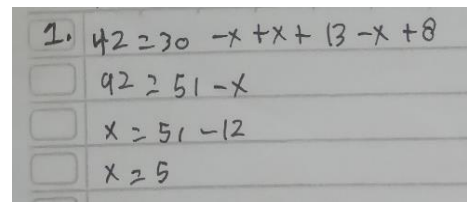 1. 42 = 30 -x + x + 13 - x + 8
92 = 51 - x
x = 51 - 12
x = 5